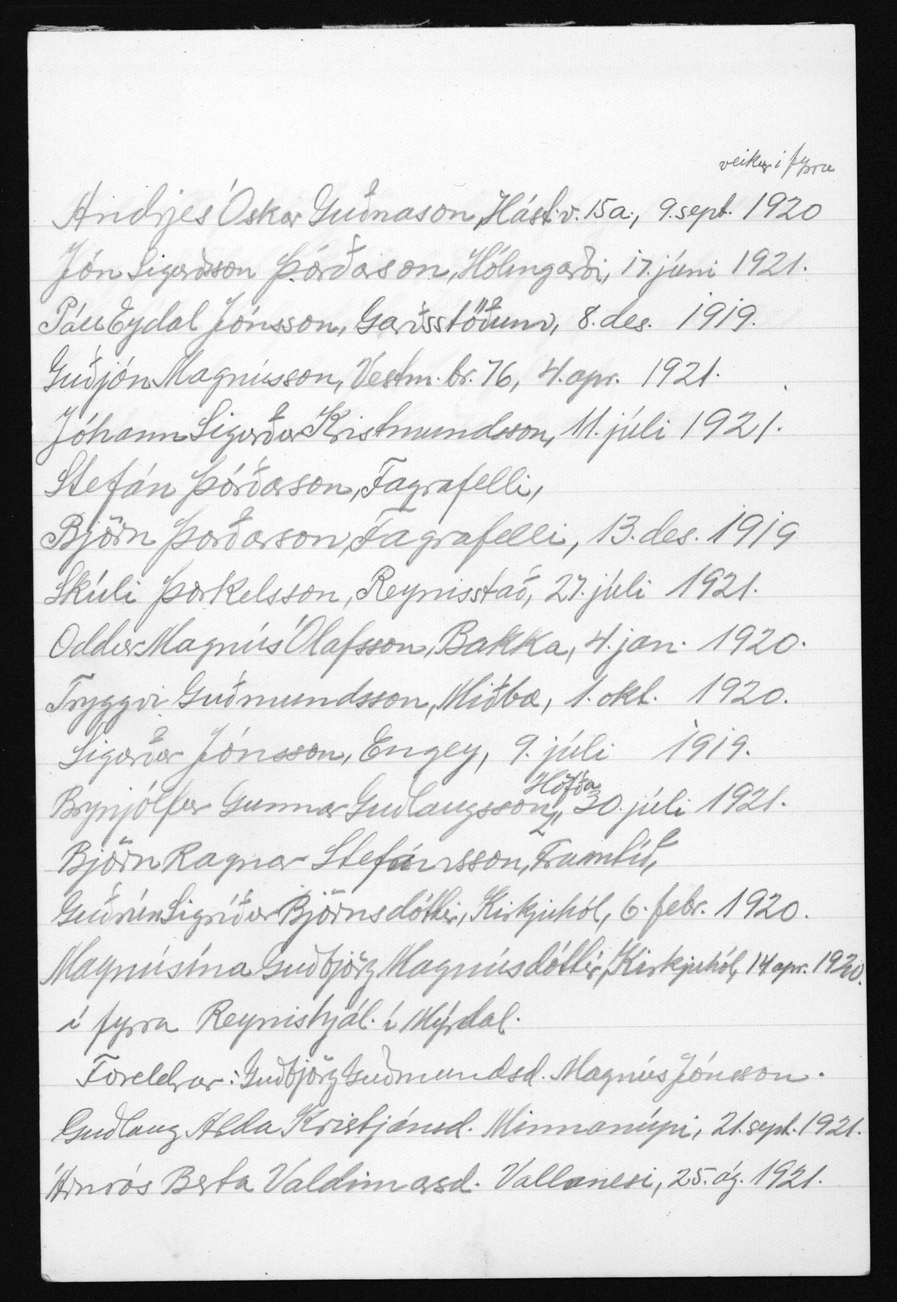 veikur í fyrra
Andrjes Óskar Guðnason, Hást.v. 15a, 9. sept. 1920
Jón Sigurðsson Þórðarson, Hólmgarði, 17. júni 1921.
Páll Eydal Jónsson, Garðsstöðum, 8. des. 1919.
Guðjón Magnússon, Vestm.br. 76, 4. apr. 1921.
Jóhann Sigurður Kristmundsson, 11. júli 1921.
Stefán Þórðarson, Fagrafelli,
Björn Þorðarson, Fagrafelli, 13. des. 1919
Skúli Þorkelsson, Reynisstað, 27. júli 1921.
Oddur Magnús Ólafsson, Bakka, 4. jan. 1920.
Tryggvi Guðmundsson, Miðbæ, 1. okt. 1920.
Sigurður Jónsson, Engey, 9. júli 1919.
Höfða
Brynjólfur Gunnar Guðlaugsson, 30. júli 1921.
Björn Ragnar Stefánsson, Framtíð,
Guðrún Sigríður Björnsdóttir, Kirkjuhól, 6. febr. 1920.
Magnúsína Guðbjörg Magnúsdóttir, Kirkjuhól, 14 apr. 1920.
í fyrra Reynishjál. í Mýrdal.
Foreldrar: Guðbjörg Guðmundsd. Magnús Jónsson.
Guðlaug Alda Kristjánsd. Minnanúpi, 21. sept. 1921.
Arnrós Berta Valdimarsd. Vallanesi, 25. ág. 1921.